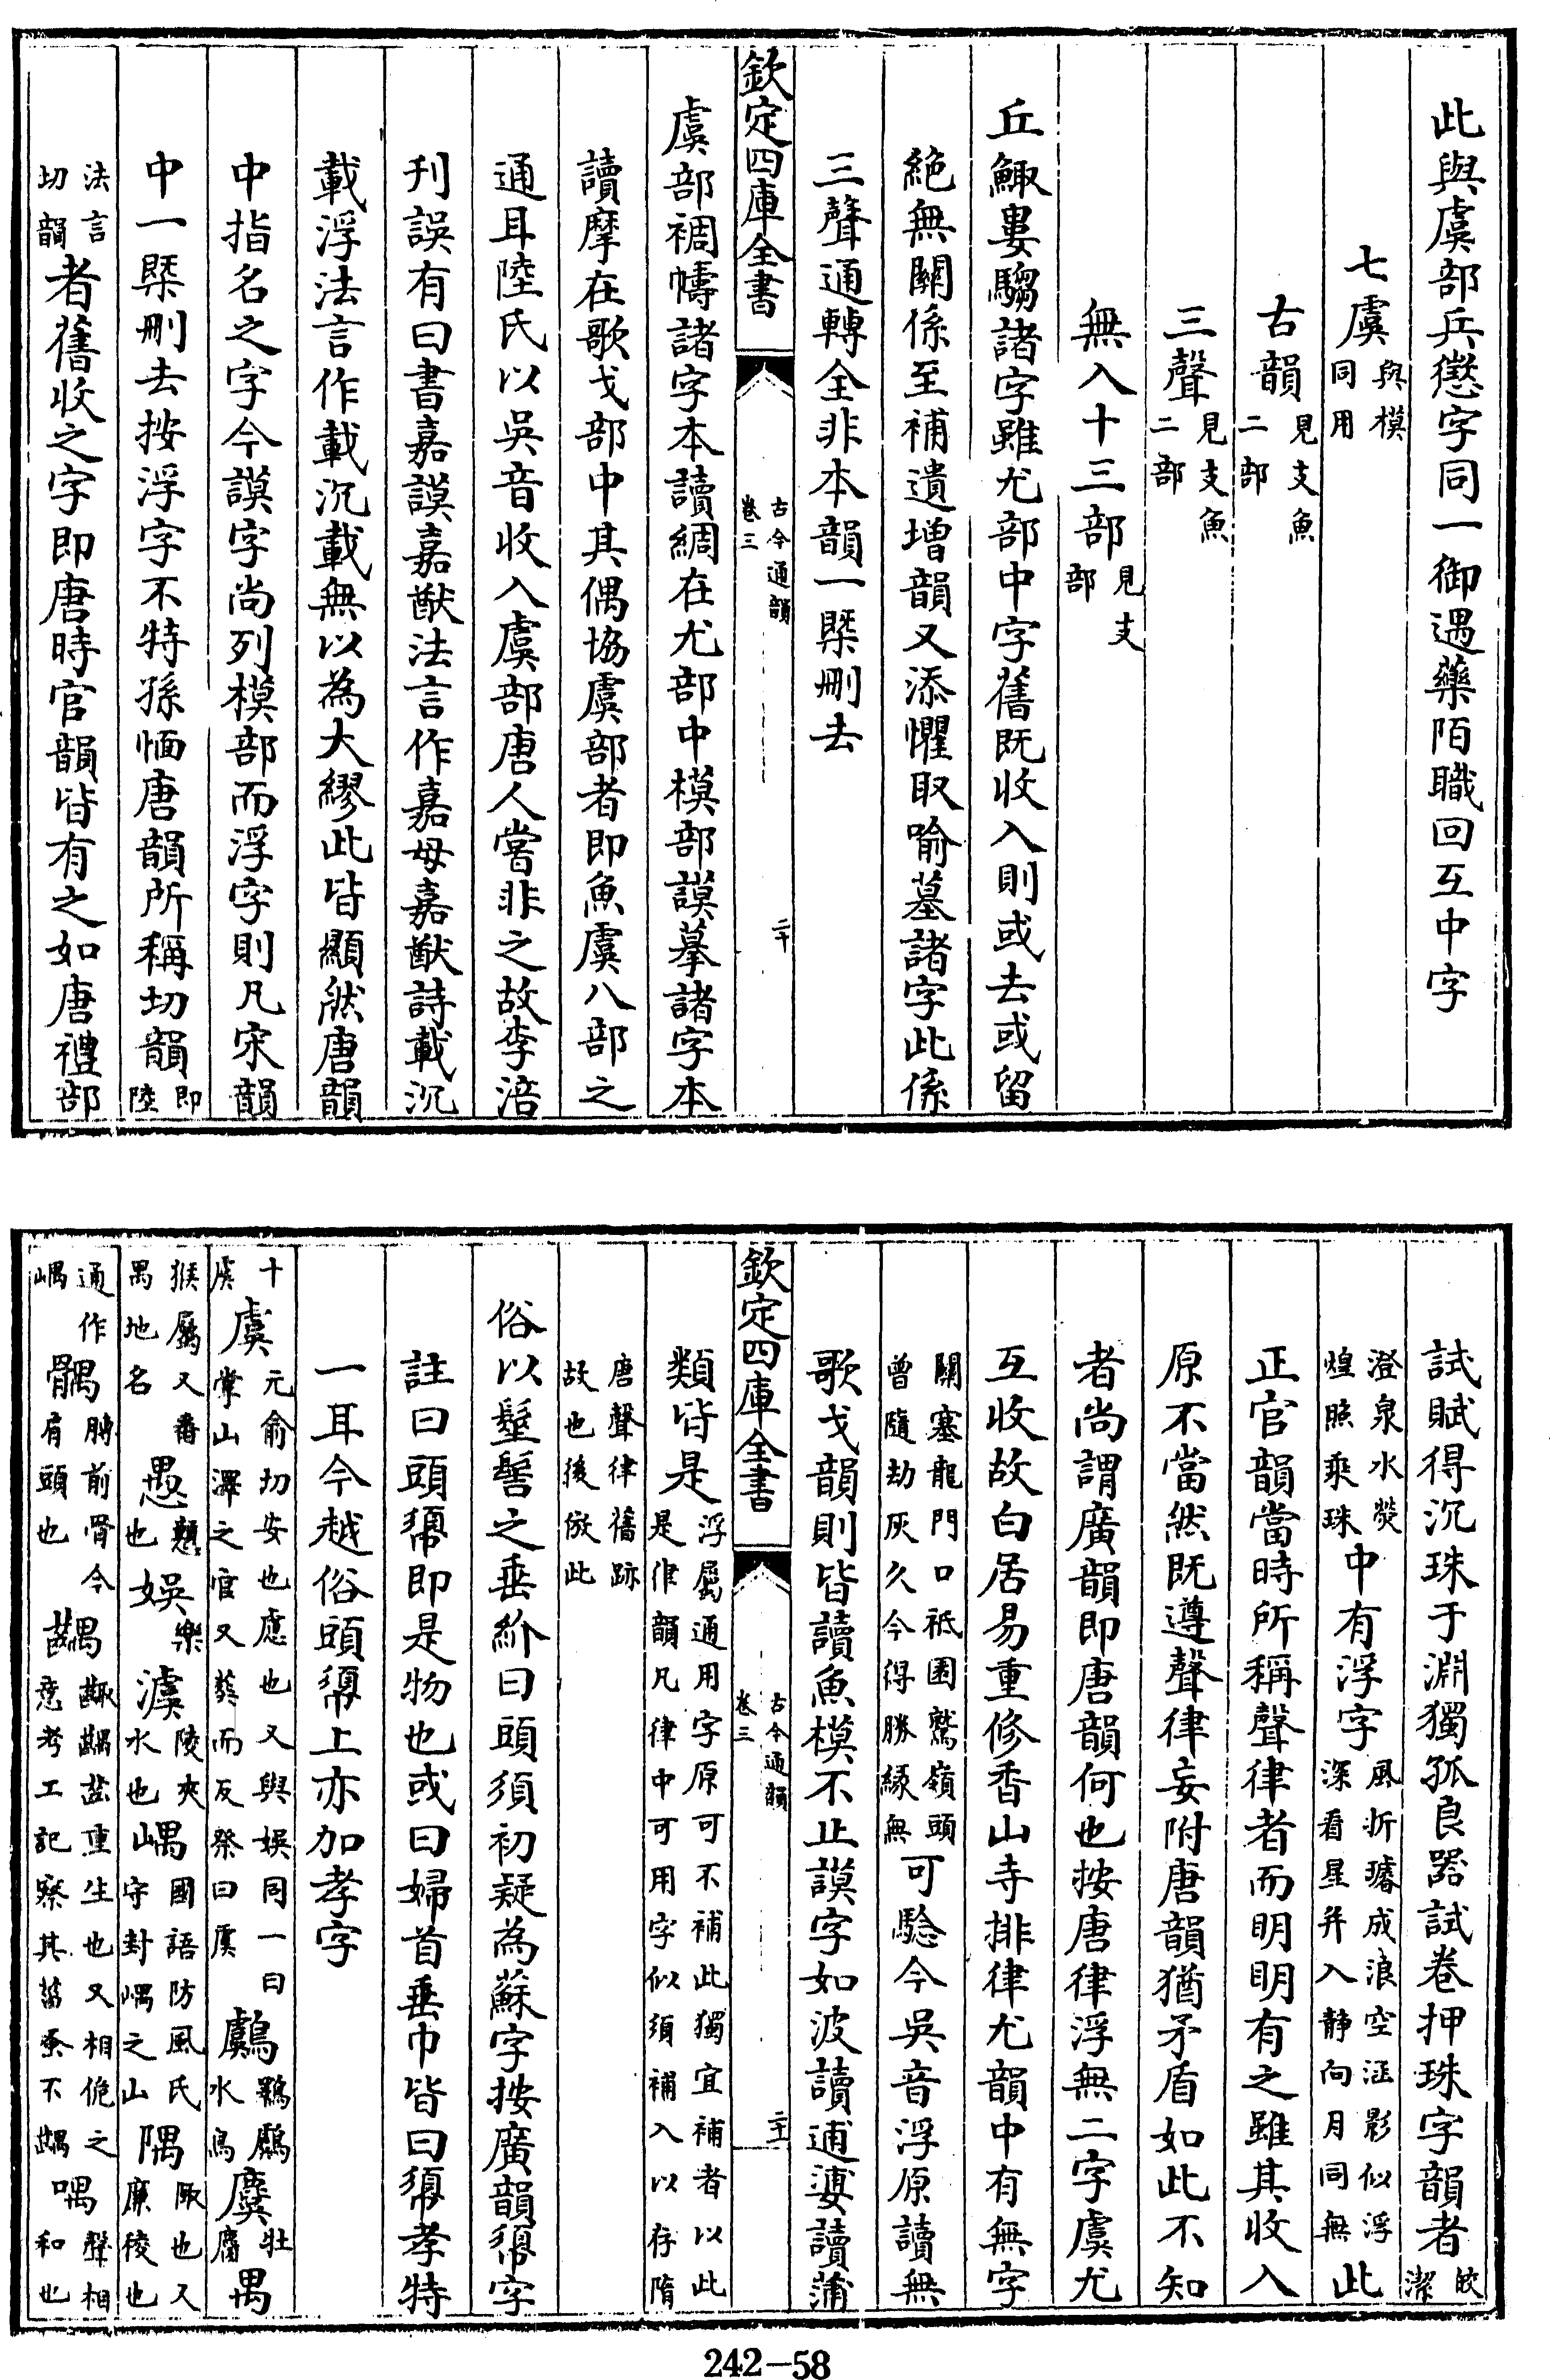 此與虞部兵懲字同一御遇藥陌職回互中字
七虞與模同用
古韻見支魚二部
三聲見支魚二部
無入十三部見支部
丘鯫婁騶諸字雖尤部中字舊既收入則或去或留
絶無關係至補遺增韻又添懼取喻墓諸字此係
三聲通轉全非本韻一槩刪去
欽定四庫全書
古今通韻
卷三
二十
虞部裯幬諸字本讀綢在尤部中模部謨摹諸字本
讀摩在歌戈部中其偶協虞部者即魚虞八部之
通耳陸氏以吳音收入虞部唐人嘗非之故李涪
刋誤有曰書嘉謨嘉猷法言作嘉母嘉猷詩載沉
載浮法言作載沉載無以為大繆此皆顯然唐韻
中指名之字今謨字尚列模部而浮字則凡宋韻
中一槩刪去按浮字不特孫愐唐韻所稱切韻即陸
法言切韻者舊收之字即唐時官韻皆有之如唐禮部
試賦得沉珠于淵獨孤良器試卷押珠字韻者皎潔
澄泉水熒煌照乘珠中有浮字風折璿成浪空涵影似浮深看星并入靜向月同無此
正官韻當時所稱聲律者而明明有之雖其收入
原不當然既遵聲律妄附唐韻猶矛盾如此不知
者尚謂廣韻即唐韻何也按唐律浮無二字虞尤
互收故白居易重修香山寺排律尤韻中有無字
關塞龍門口祇園鷲嶺頭曾隨劫灰久今得勝緣無可驗今吳音浮原讀無
歌戈韻則皆讀魚模不止謨字如波讀逋婆讀蒲
欽定四庫全書
古今通韻
卷三
二十一
類皆是浮屬通用字原可不補此獨宜補者以此是律韻凡律中可用字似須補入以存隋
唐聲律舊跡故也後倣此
俗以髽髻之垂紒曰頭須初疑為蘇字按廣韻㡏字
註曰頭㡏即是物也或曰婦首垂巾皆曰㡏孝特
一耳今越俗頭㡏上亦加孝字
十虞虞元俞切安也應也又與娛同一曰掌山澤之官又葬而反祭曰虞鸆鸅鸆水鳥麌牡麕禺
猴屬又番禺地名愚戇也娛樂澞陵夾水也嵎國語防風氏守封嵎之山隅陬也又廉稜也
通作嵎髃髆前骨今肩頭也齵齱齵齒重生也又相佹之意考工記察其菑蚤不齵喁聲相和也
242-58